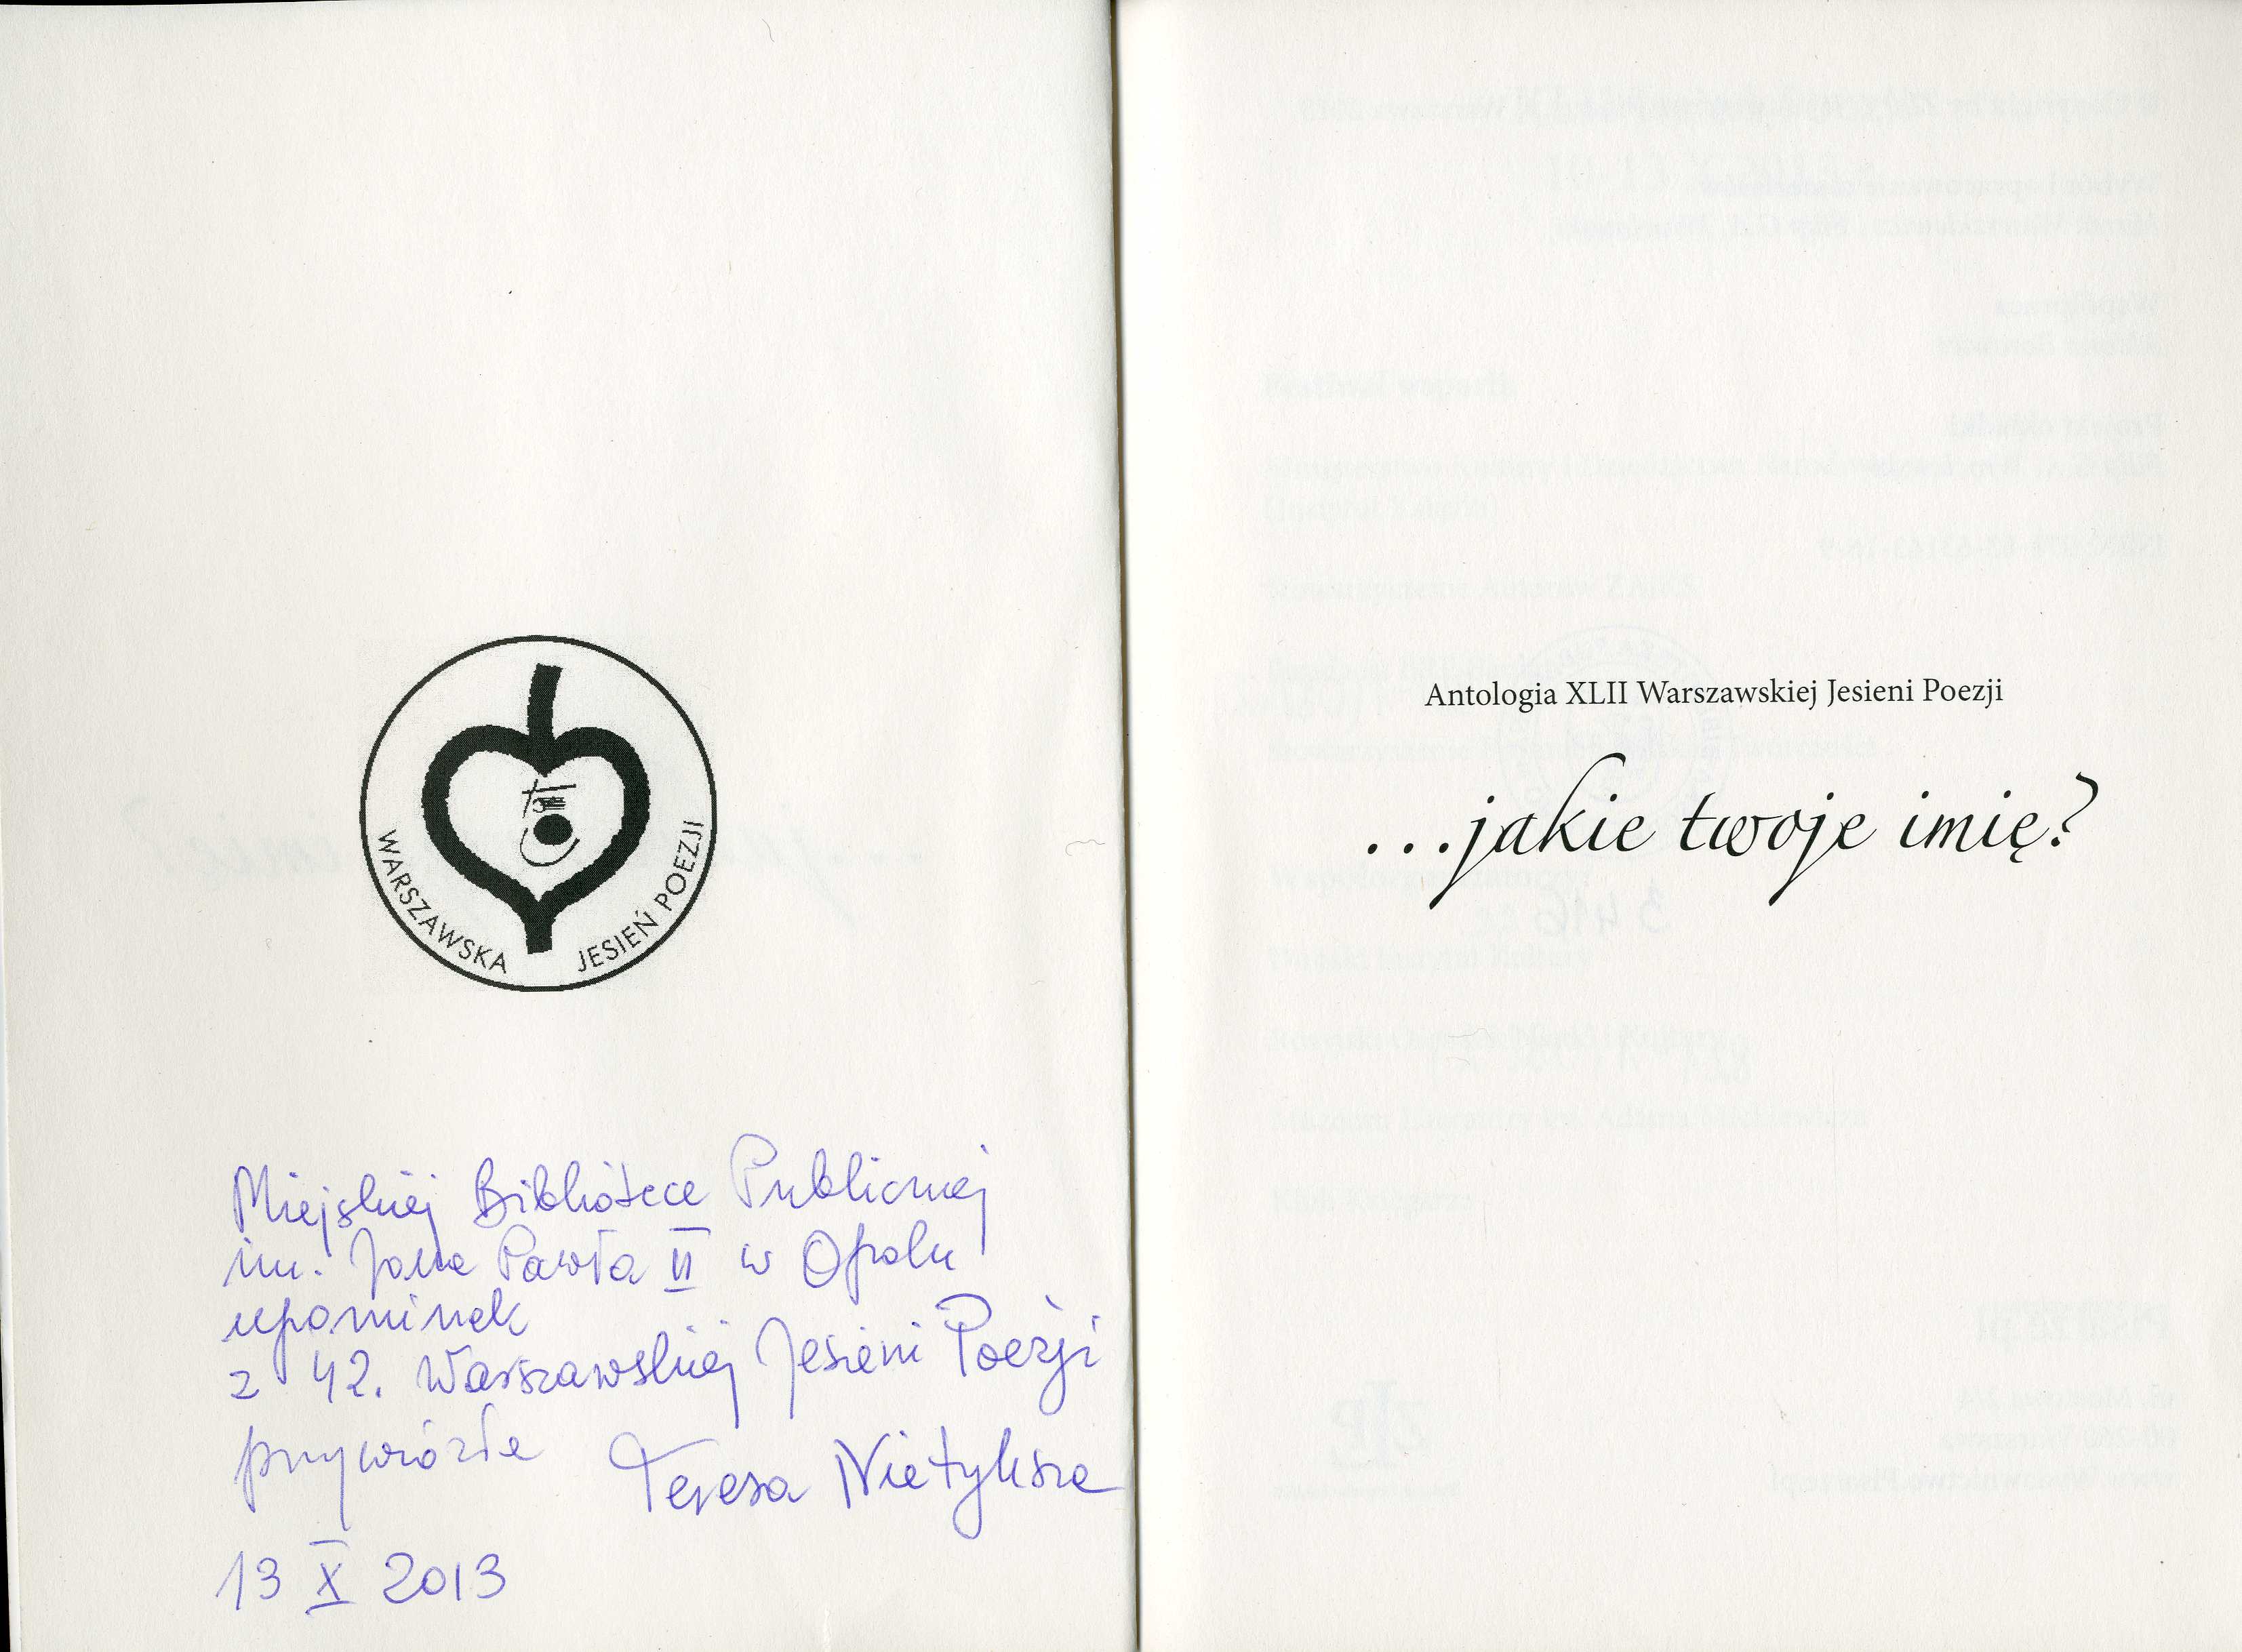 WARSZAWSKA JESIEŃ POEZJI
Miejskiej Bibliotece Publicznej
im. Jana Pawła II w Opolu
upominek
z 42. Warszawskiej Jesieni Poezji
przywiozła Teresa Nietyksza
13 X 2013
Antologia XLII Warszawskiej Jesieni Poezji
...jakie twoje imię?